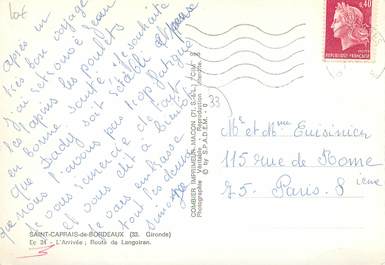 10€
après un
très bon voyage
j'ai retrouvé Jean
les lapins les poulets
en bonne santé. Je souhaite
que Dady soit rétabli et que
nous n'ayons pas trop fatigués
je vous remercie de tout
et vous dit à bientôt
je vous embrasse
tous les deux
Simone
SAINT-CAPRAIS-de-BORDEAUX (33. Gironde)
Ec 24 - L'Arrivée; Route de Langoiran.
COMBIER IMPRIMEUR MACON (71, S.-&-L.) "CIM"
Photographie Véritable - Reproduction Interdite.
© by S.P.A.D.E.M.
33
0,40
REPUBLIQUE FRANCAISE
Mr et Mme Cuisinier
115 rue de Rome
75. Paris. 8 ième